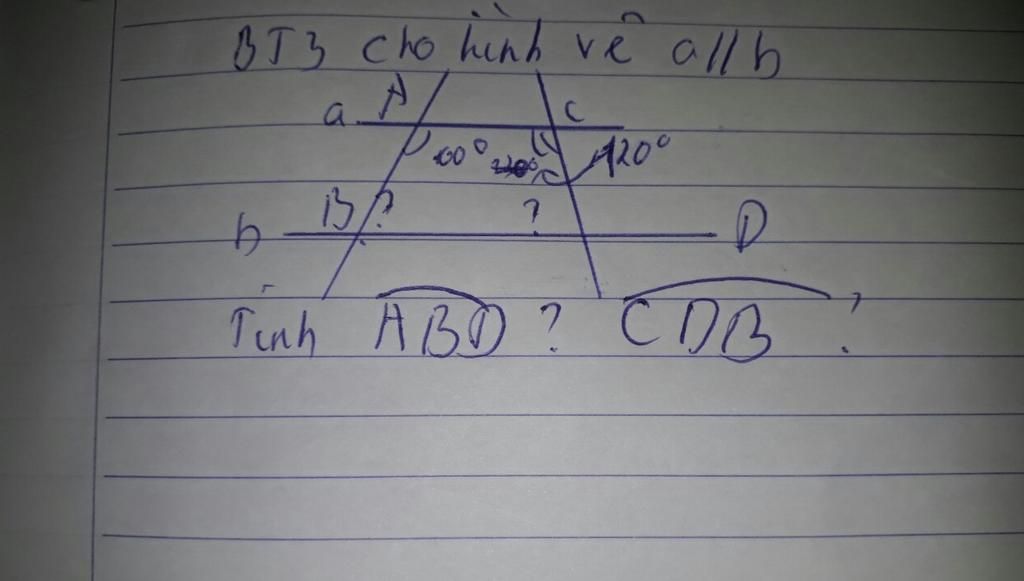 BT3 cho hình vẽ a//b
A
a
C
120°
B ?
?
b
D
Tính ABD ? CDB ?